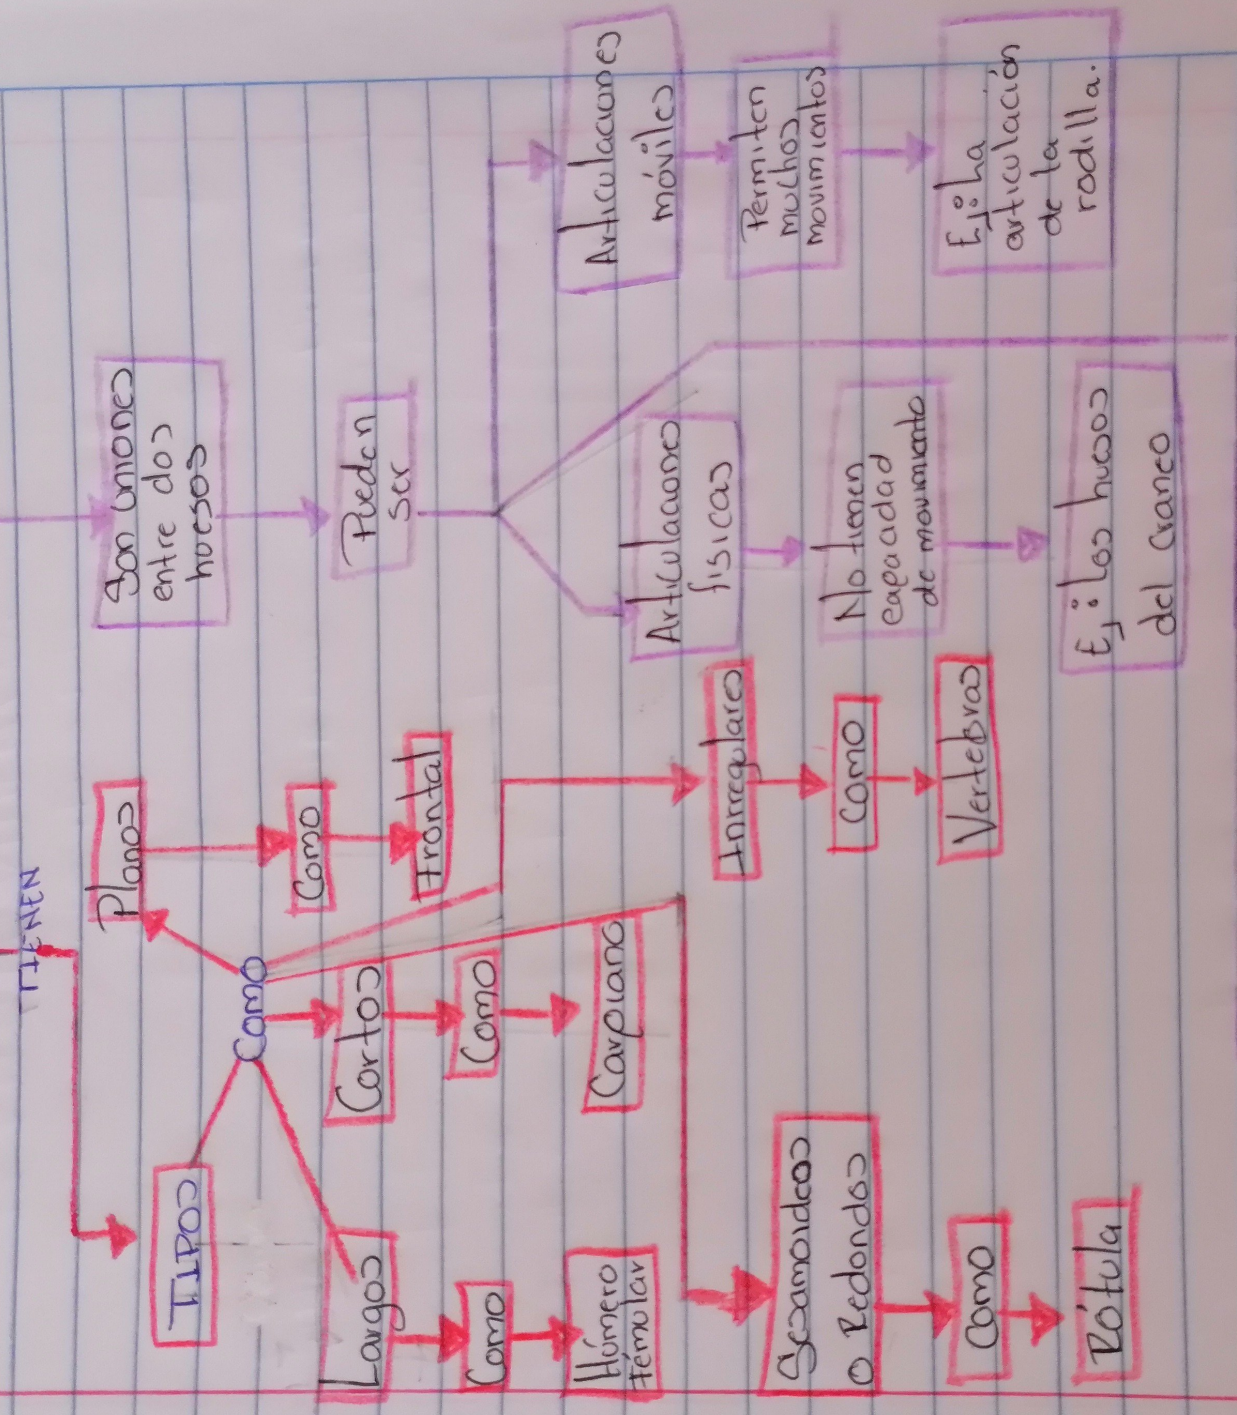 TIENEN
TIPOS
Como
Planos
Como
Frontal
Largos
Como
Húmero
Fémular
Cortos
Como
Carpiano
Irregulares
Como
Vertebras
Sesamoideos
o Redondos
Como
Rótula
Son Uniones
entre dos
huesos
Pueden
ser
Articulaciones
fisicas
No tienen
capacidad
de movimiento
Ej: Los huesos
del craneo
Articulaciones
móviles
Permiten
muchos
movimientos
Ej: La
articulación
de la
rodilla.